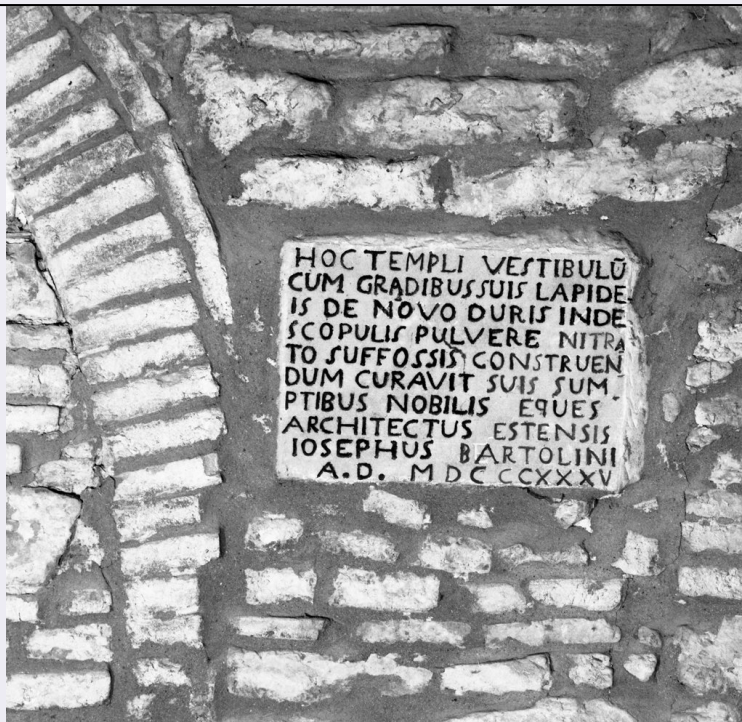 HOC TEMPLI VESTIBULŪ
CUM GRADIBUS SUIS LAPIDE
IS DE NOVO DURIS INDE
SCOPULIS PULVERE NITRA
TO SUFFOSSIS CONSTRUEN
DUM CURAVIT SUIS SUM
PTIBUS NOBILIS EQUES
ARCHITECTUS ESTENSIS
IOSEPHUS BARTOLINI
A.D. MDCCCXXXV